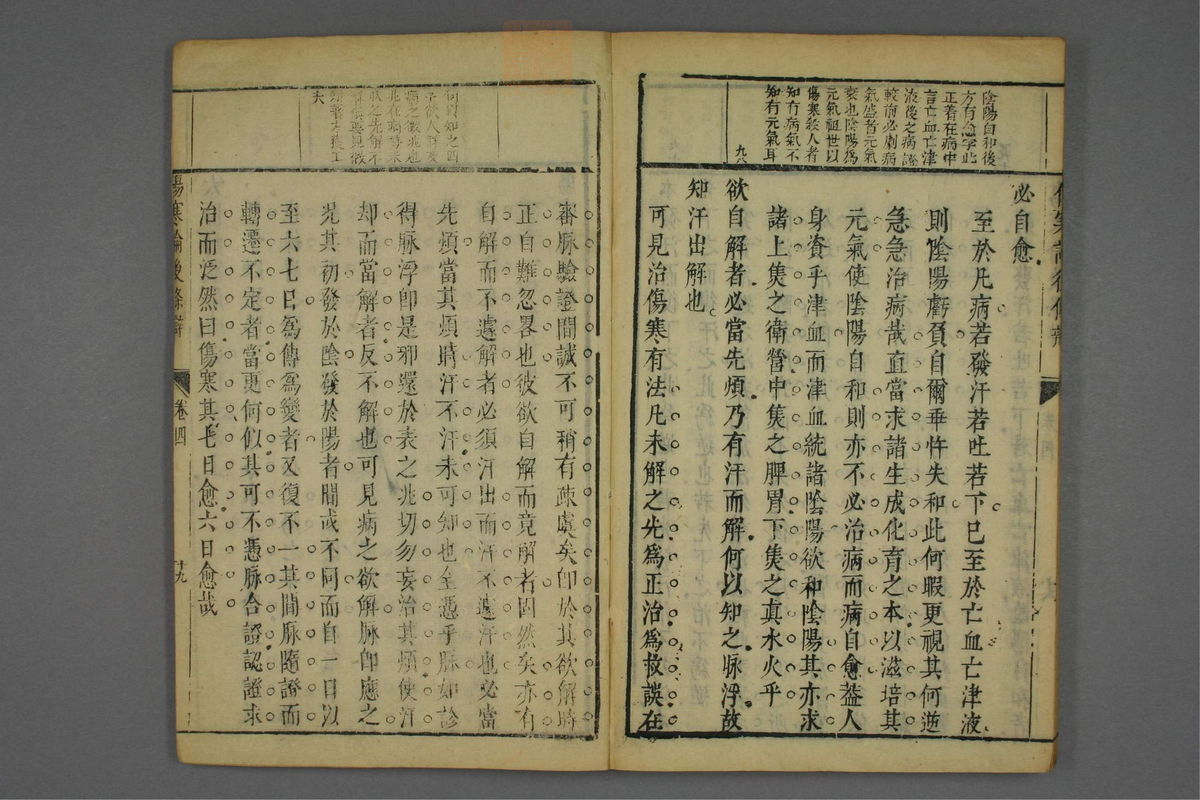 陰陽自和後
方有愈字此
正著在病中
言亡血亡津
液後之病證
較前必劇病
氣盛者元氣
衰也陰陽爲
元氣祖世以
傷寒殺人者
知有病氣不
知有元氣耳
必自愈
至於凡病若發汗若吐若下已至於亡血亡津液
則陰陽虧負自爾乖忤失和此何暇更視其何逆
急急治病哉直當求諸生成化育之本以滋培其
元氣使陰陽自和則亦不必治病而病自愈蓋人
身資乎津血而津血統諸陰陽欲和陰陽其亦求
諸上焦之衛營中焦之脾胃下焦之真水火乎
欲自解者必當先煩乃有汗而解何以知之脉浮故
知汗出解也
可見治傷寒有法凡未解之先爲正治爲救誤在
何以知之四
病之徵兆也
傷寒論後條辨
卷四
十九
審脉驗證間誠不可稍有疎虞矣即於其欲解時
正自難忽畧也彼欲自解而竟解者固然矣亦有
自解而不遽解者必須汗出而汗不遽汗也必當
先煩當其煩時汗不汗未可知也全憑乎脉如診
得脉浮即是邪還於表之兆切勿妄治其煩使汗
却而當解者反不解也可見病之欲解脉即應之
况其初發於陰發於陽者間或不同而自一日以
至六七日爲傳爲變者又復不一其間脉隨證而
轉遷不定者當更何似其可不憑脉合證認證求
治而泛然曰傷寒其七日愈六日愈哉